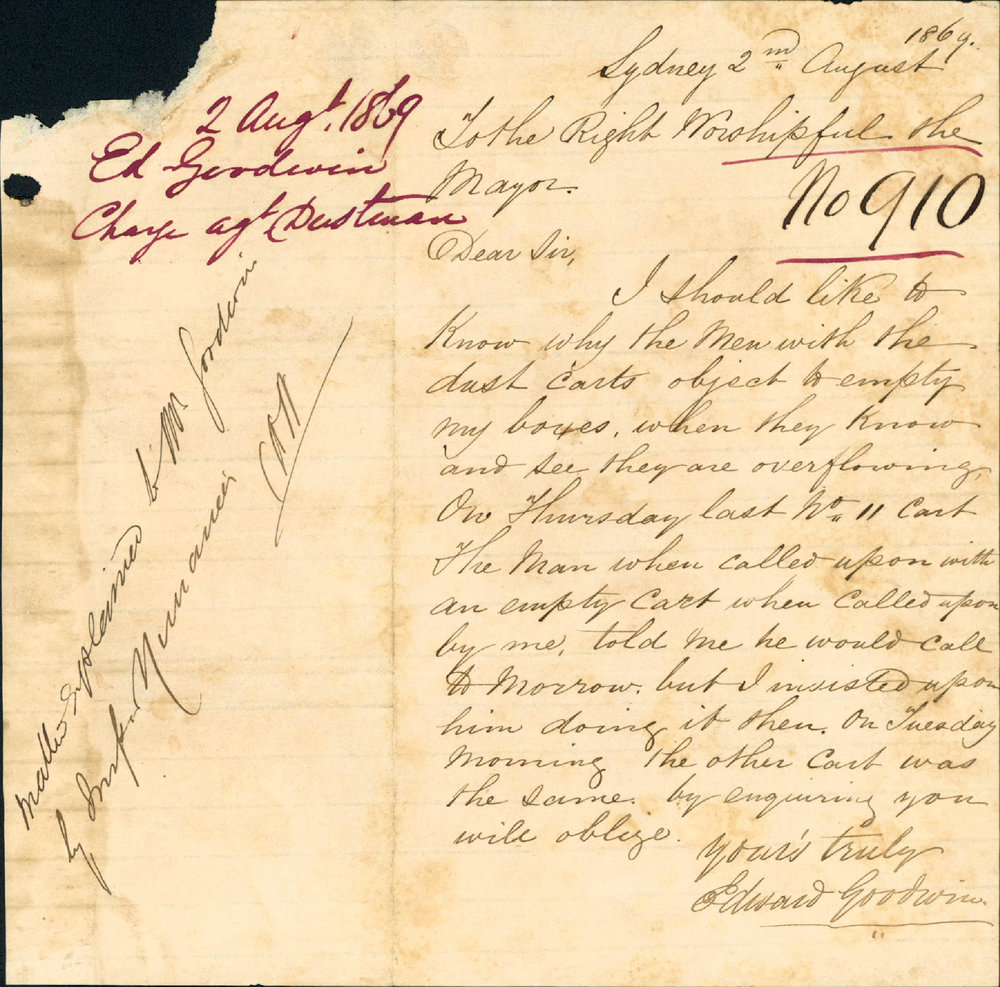 1869.
Sydney 2nd August
To the Right Worshipful the
Mayor.
No 910
Dear Sir,
I should like to
Know why the Men with the
dust Carts object to empty
my boxes, when they Know
and see they are overflowing.
On Thursday last No 11 Cart
The Man when called upon with
an empty Cart when Called upon
by me, told me he would Call
to Morrow. but I insisted upon
him doing it then. On Tuesday
Morning the other Cart was
the same. by enquiring you
will oblige.
Your's truly
Edward Goodwin.
2 Augt. 1869
Ed Goodwin
Charge agt Dustman
Matter Explained to Mr Goodwin
by Inspr